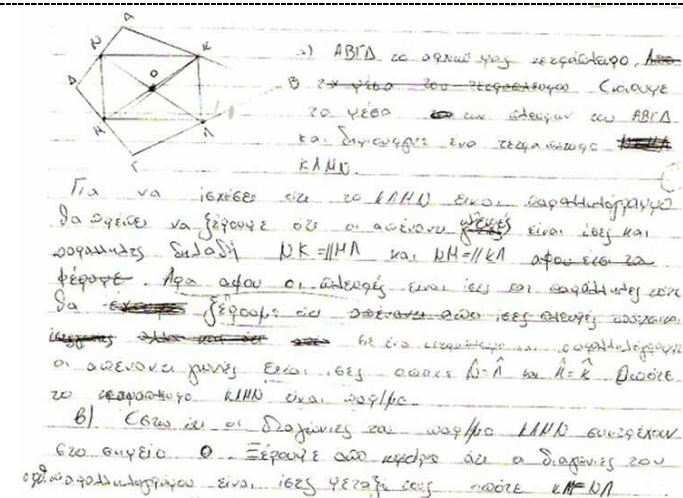 Α
Ν
Κ
Ο
Δ
Β
Μ
Λ
Γ
α) ΑΒΓΔ το αρχικό μας τετράπλευρο.
το μέσο του τετραπλεύρου
το μέσο των πλευρών του ΑΒΓΔ
και δημιουργείτε ένα τετράπλευρο
ΚΛΜΝ.
Για να ισχύσει ότι το ΚΛΜΝ είναι παραλληλόγραμμο
θα πρέπει να ξέρουμε ότι οι απέναντι πλευρές είναι ίσες και
παράλληλες δηλαδή ΝΚ =//ΜΛ και ΝΜ=//ΚΛ αφου
Αρα αφου οι πλευρές είναι ίσες και παράλληλες τότε
θα ξέρουμε ότι απέναντι ίσες πλευρές
σε ένα παραλληλόγραμμο
οι απέναντι γωνίες είναι ίσες οπότε Ν̂=Λ̂ και Μ̂=Κ̂ Οπότε
το τετράπλευρο ΚΛΜΝ είναι παρ/μο.
Β) Εστω ότι οι διαγώνιες του παρ/μο ΚΛΜΝ συντρέχουν
στο σημείο Ο. Ξέρουμε από ότι οι διαγώνιες του
ορθοπαραλληλογράμου είναι ίσες μεταξύ τους οπότε ΚΜ=ΝΛ